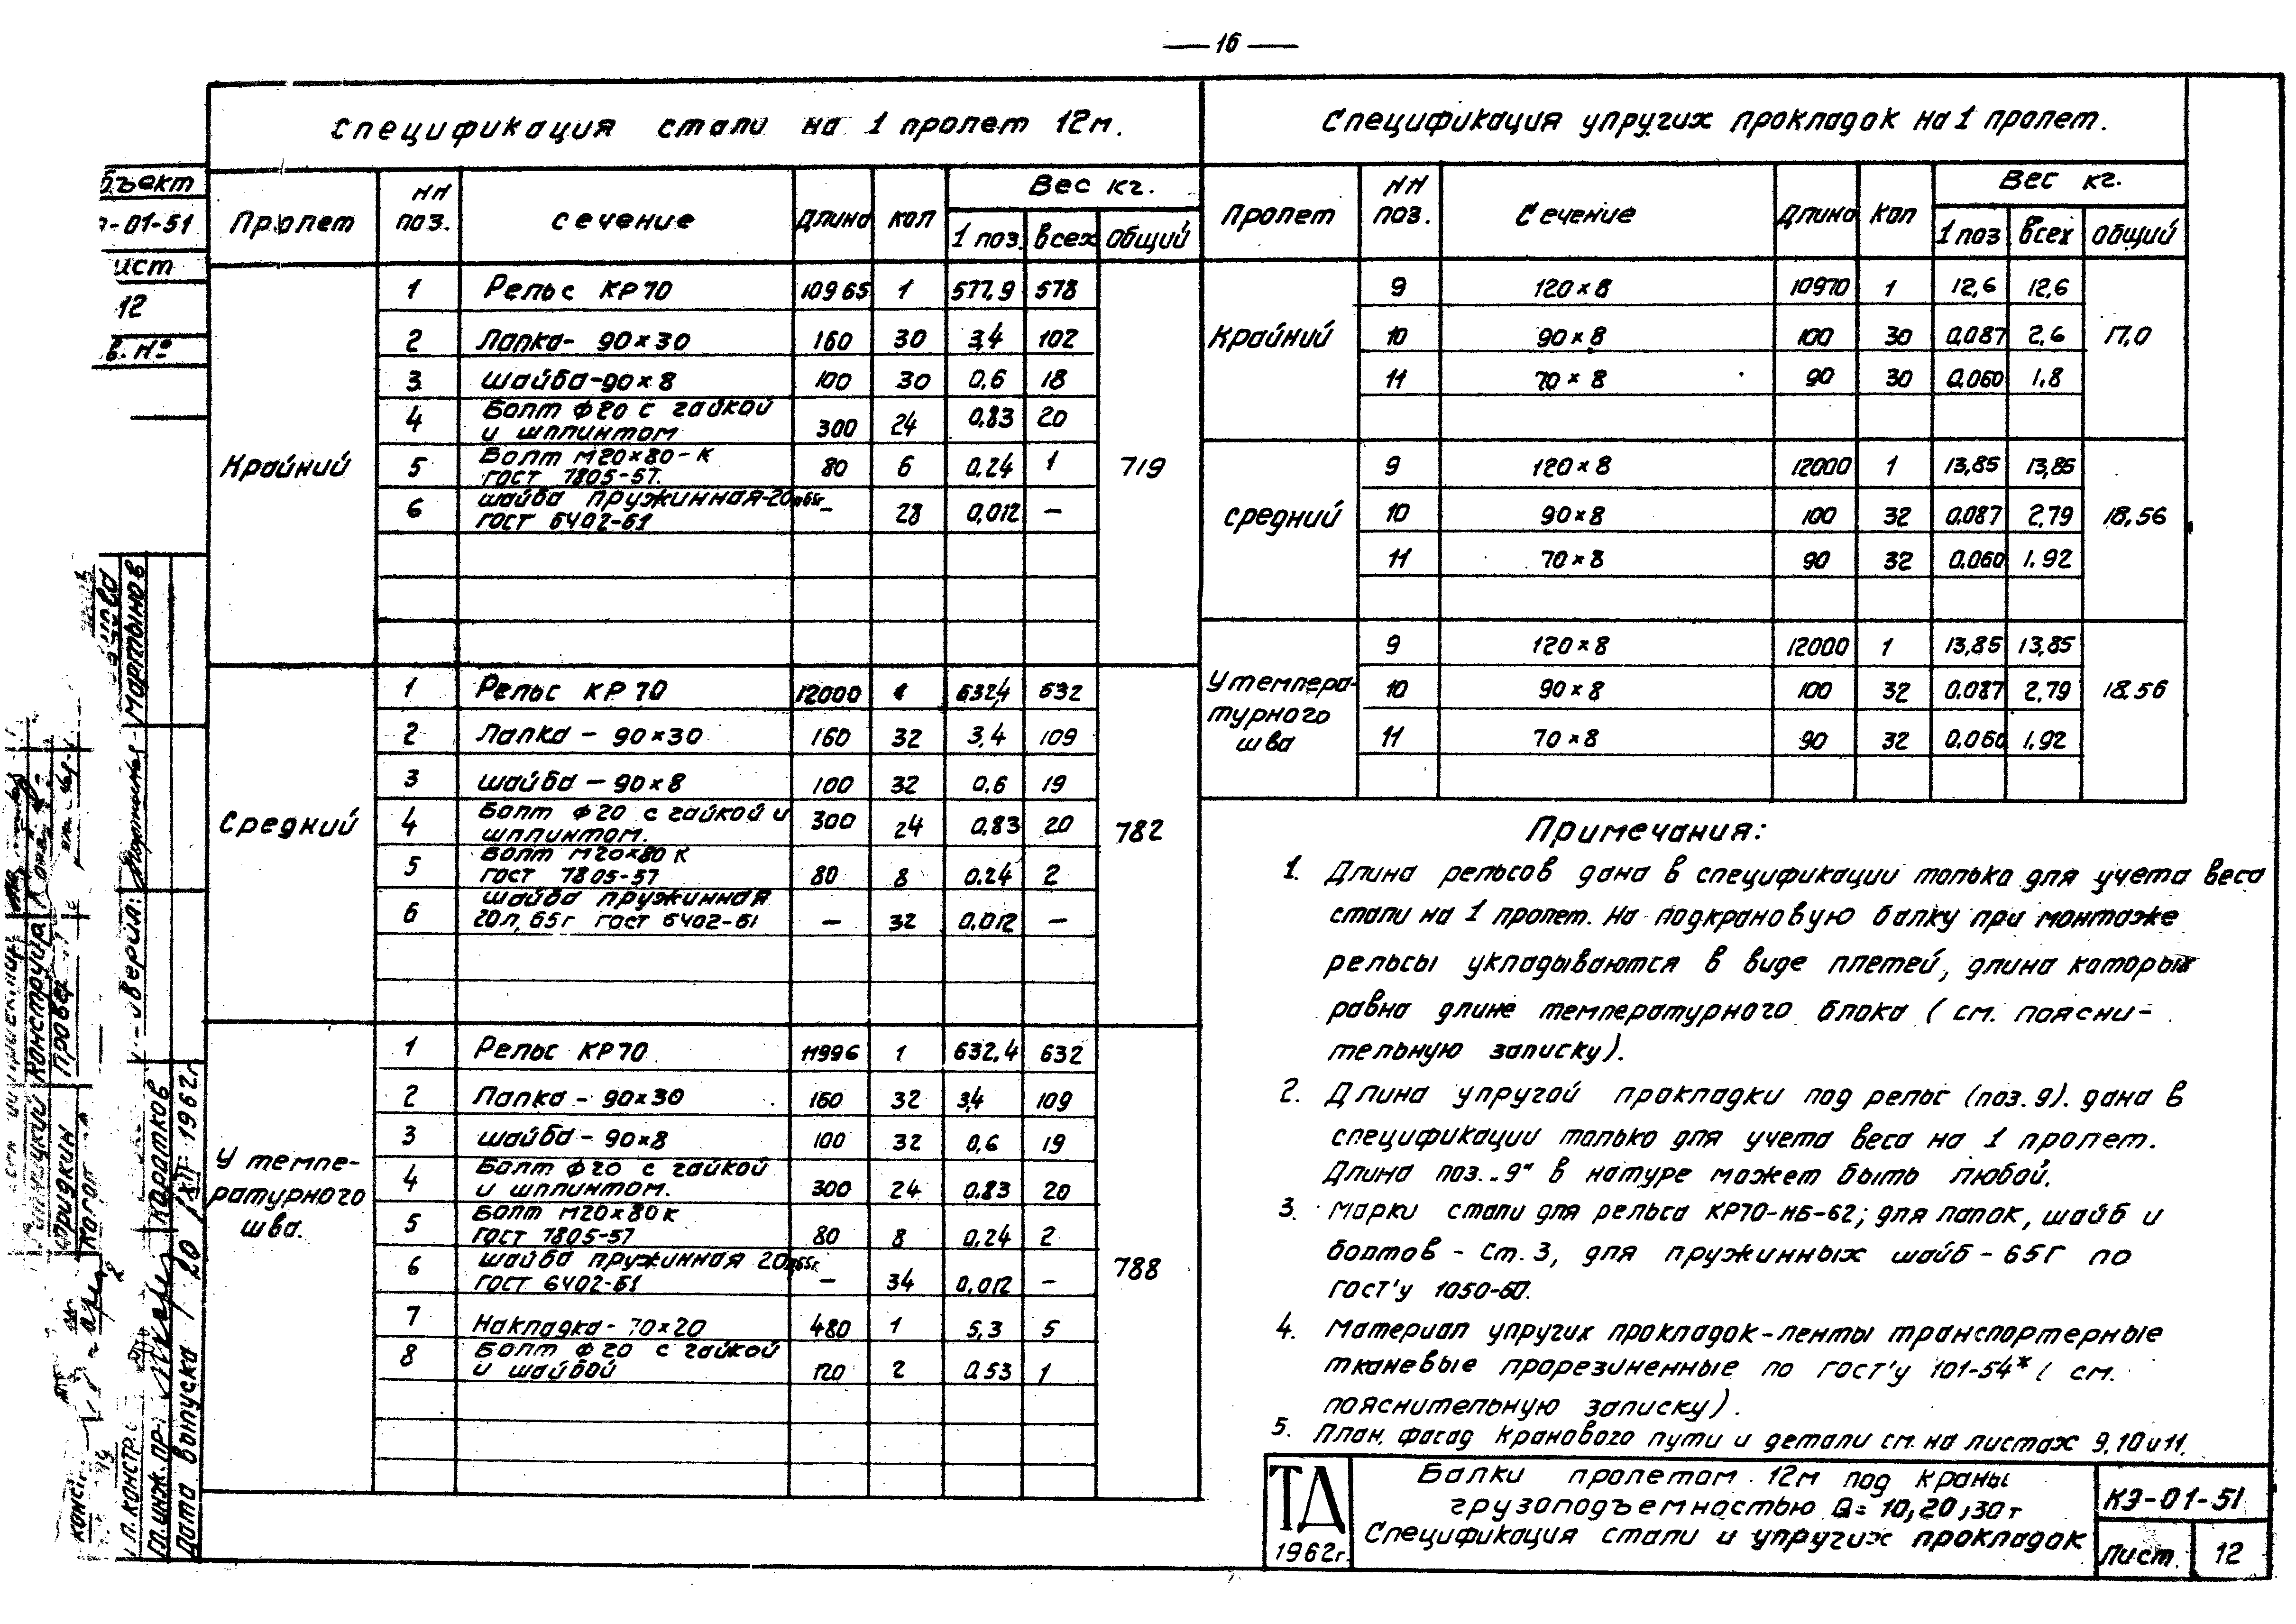 — 16 —
Спецификация стали на 1 пролет 12м.
Пролет | NN поз. | сечение | Длина | кол | Вес кг. 1 поз. | всех | Общий
Крайний | 1 | Рельс КР70 | 10965 | 1 | 577,9 | 578 | 719
2 | Лапка- 90×30 | 160 | 30 | 3,4 | 102
3 | шайба-90×8 | 100 | 30 | 0,6 | 18
4 | Болт ф20 с гайкой и шплинтом | 300 | 24 | 0,83 | 20
5 | Болт М20×80-К ГОСТ 7805-57. | 80 | 6 | 0,24 | 1
6 | шайба пружинная-20н65г ГОСТ 6402-61 | – | 28 | 0,012 | –
Средний | 1 | Рельс КР70 | 12000 | 1 | 632,4 | 632 | 782
2 | Лапка - 90×30 | 160 | 32 | 3,4 | 109
3 | шайба - 90×8 | 100 | 32 | 0.6 | 19
4 | Болт ф20 с гайкой и шплинтом. | 300 | 24 | 0,83 | 20
5 | Болт М20×80К ГОСТ 7805-57 | 80 | 8 | 0.24 | 2
6 | шайба пружинная 20л, 65г ГОСТ 6402-61 | – | 32 | 0,012 | –
У темпе-ратурного шва. | 1 | Рельс КР70 | 11996 | 1 | 632,4 | 632 | 788
2 | Лапка - 90×30 | 160 | 32 | 3,4 | 109
3 | шайба - 90×8 | 100 | 32 | 0,6 | 19
4 | Болт ф20 с гайкой и шплинтом. | 300 | 24 | 0.83 | 20
5 | Болт М20×80К ГОСТ 7805-57 | 80 | 8 | 0,24 | 2
6 | шайба пружинная 20н65г. ГОСТ 6402-61 | – | 34 | 0,012 | –
7 | Накладка - 70×20 | 480 | 1 | 5,3 | 5
8 | Болт ф20 с гайкой и шайбой | 120 | 2 | 0.53 | 1
Спецификация упругих прокладок на 1 пролет.
Пролет | NN поз. | Сечение | Длина | Кол | Вес кг. 1 поз | всех | Общий
Крайний | 9 | 120×8 | 10970 | 1 | 12,6 | 12,6 | 17,0
10 | 90×8 | 100 | 30 | 0,087 | 2,6
11 | 70×8 | 90 | 30 | 0.060 | 1.8
средний | 9 | 120×8 | 12000 | 1 | 13,85 | 13,85 | 18,56
10 | 90×8 | 100 | 32 | 0.087 | 2,79
11 | 70×8 | 90 | 32 | 0.060 | 1.92
У темпера-турного шва | 9 | 120×8 | 12000 | 1 | 13,85 | 13,85 | 18.56
10 | 90×8 | 100 | 32 | 0.087 | 2,79
11 | 70×8 | 90 | 32 | 0.060 | 1.92
Примечания:
1. Длина рельсов дана в спецификации только для учета веса
стали на 1 пролет. На подкрановую балку при монтаже
рельсы укладываются в виде плетей, длина которых
равна длине температурного блока ( см. поясни-
тельную записку).
2. Длина упругой прокладки под рельс (поз. 9). дана в
спецификации только для учета веса на 1 пролет.
Длина поз. „9" в натуре может быть любой.
3. Марки стали для рельса КР70-НБ-62; для лапок, шайб и
болтов - Ст. 3, для пружинных шайб - 65Г по
ГОСТ'у 1050-60.
4. Материал упругих прокладок-ленты транспортерные
тканевые прорезиненные по ГОСТ'у 101-54* ( см.
пояснительную записку).
5. План, фасад кранового пути и детали см. на листах 9, 10 и 11.
ТД
1962г.
Балки пролетом 12м под краны
грузоподъемностью Q= 10, 20, 30т
Спецификация стали и упругих прокладок
КЭ-01-51
Лист 12
бъект
-01-51
ист
12
в. №
Мартынов
верил:
Конструир
Провер
Фридкин
Коган
Коротков
Гл. инж. пр.
Дата выпуска 20/XII 1962г